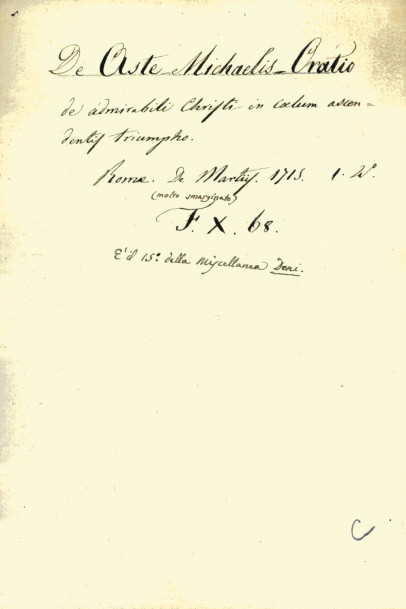 De Aste Michaelis Oratio
de admirabili Christi in cœlum ascen=
dentis triumpho.
Romæ. De Martiis. 1715. 1. 4º.
(molto smarginato)
F. X. 68.
E' il 15º della Miscellanea Doni.
C